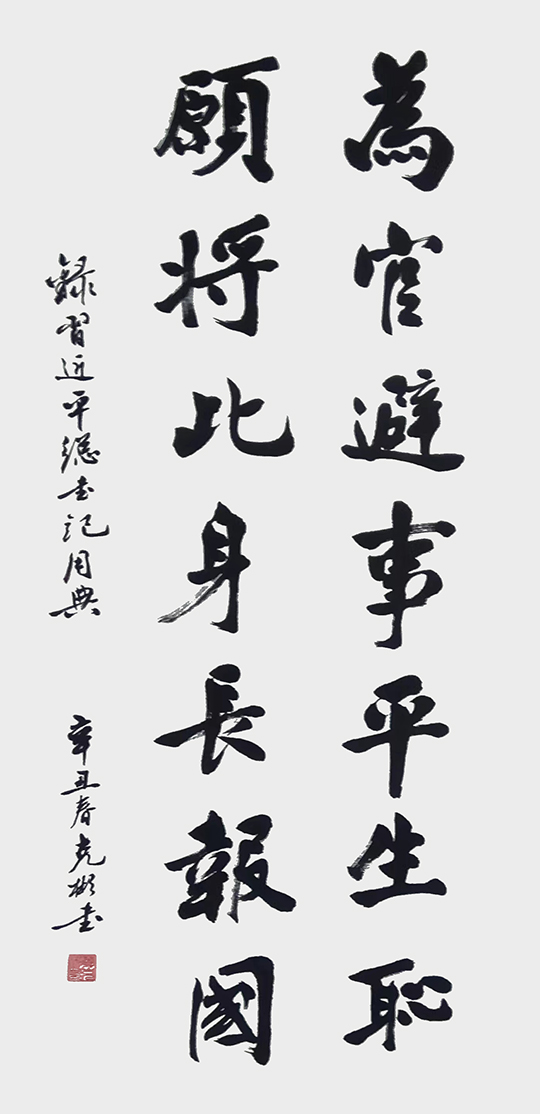 為官避事平生恥
願將此身長報國
錄習近平總書記用典
辛丑春克彬書